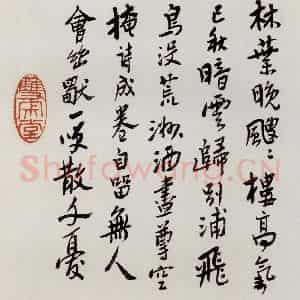 林葉晚颼〻樓高氣
已秋暗雲歸別浦飛
鳥没荒洲酒盡尊空
掩詩成卷自留無人
會幽一咲散千憂
Shufawang.CN